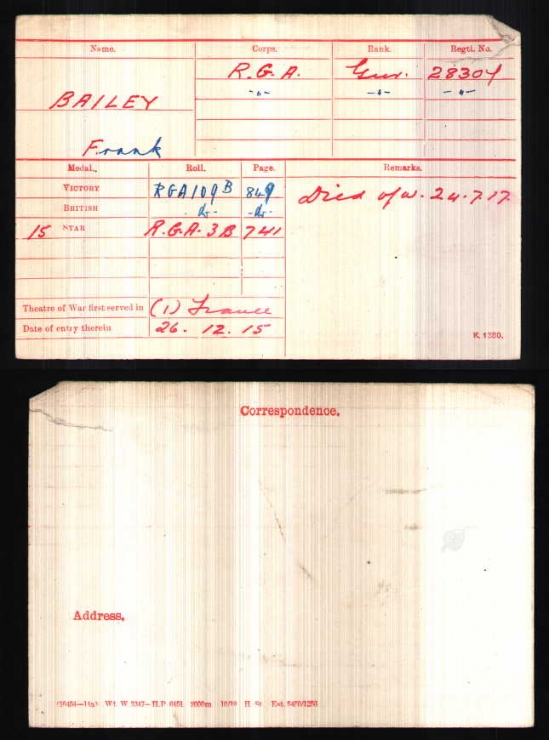 Name. Corps. Rank. Regtl. No.
R.G.A. Gnr. 28304
-"- -"- -"-
BAILEY
Frank
Medal. Roll. Page. Remarks.
VICTORY RGA109B 849 Died of W. 24.7.17.
BRITISH -do- -do-
15 STAR R.G.A. 3B 741
Theatre of War first served in (1) France
Date of entry therein 26. 12. 15
K. 1380.
Correspondence.
Address.
Wt. W 5470/1251